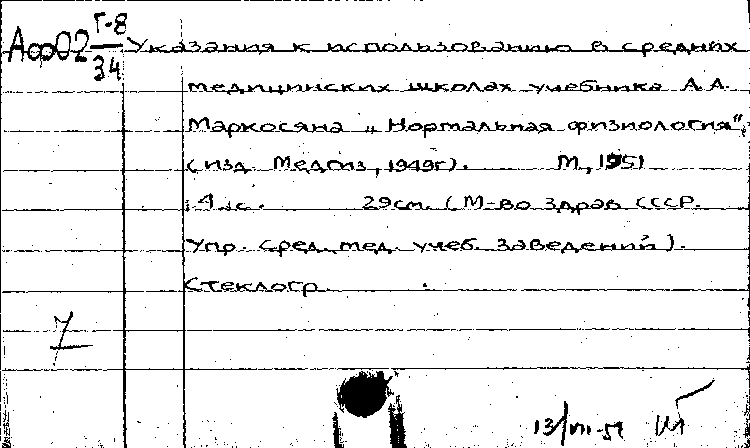 Аф02 Г-8/34 Указания к использованию в средних
медицинских школах учебника А.А.
Маркосяна „Нормальная физиология",
(изд. Медгиз, 1949г). М, 1951
4 с. 29см. (М-во здрав СССР.
Упр. сред. мед. учеб. заведений).
Стеклогр.
7
13/VII-51